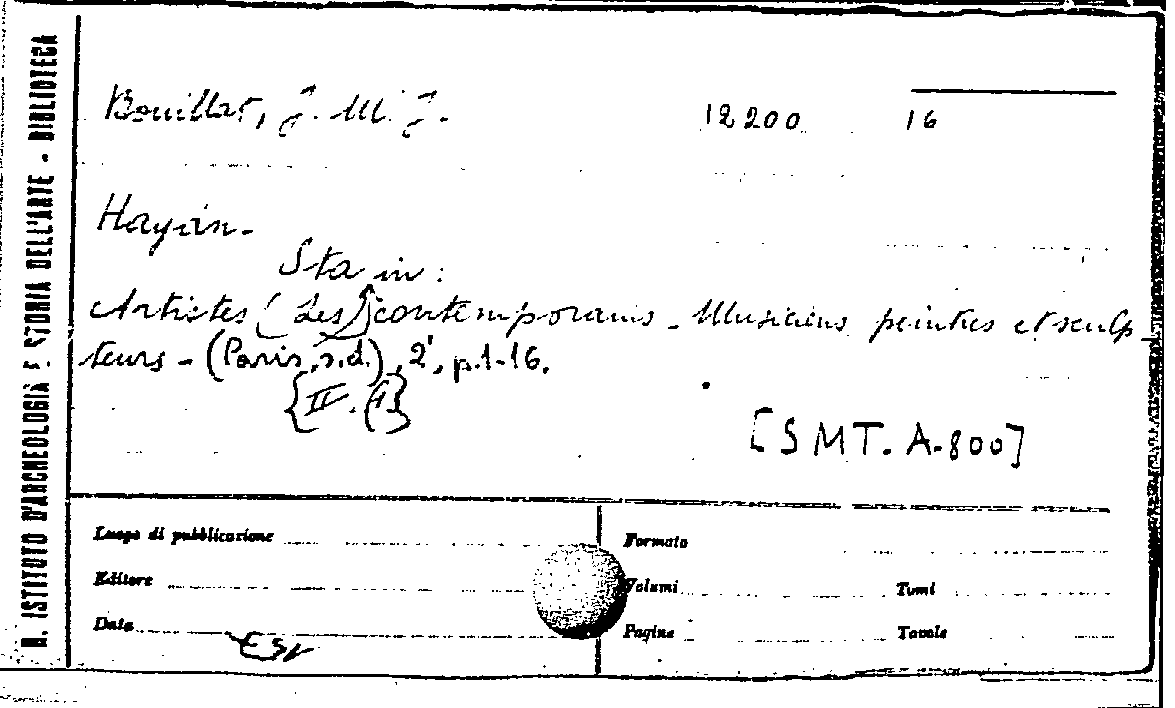 R. ISTITUTO D'ARCHEOLOGIA E STORIA DELL'ARTE - BIBLIOTECA
Bouillat, J. M. J. 12200 16
Haydn.
Sta in:
Artistes (Les) contemporains - Musiciens peintres et sculp-
teurs - (Paris, s.d.), 2', p. 1-16.
[SMT. A.800]
Luogo di pubblicazione Formato
Editore Volumi Tomi
Data Pagine Tavole